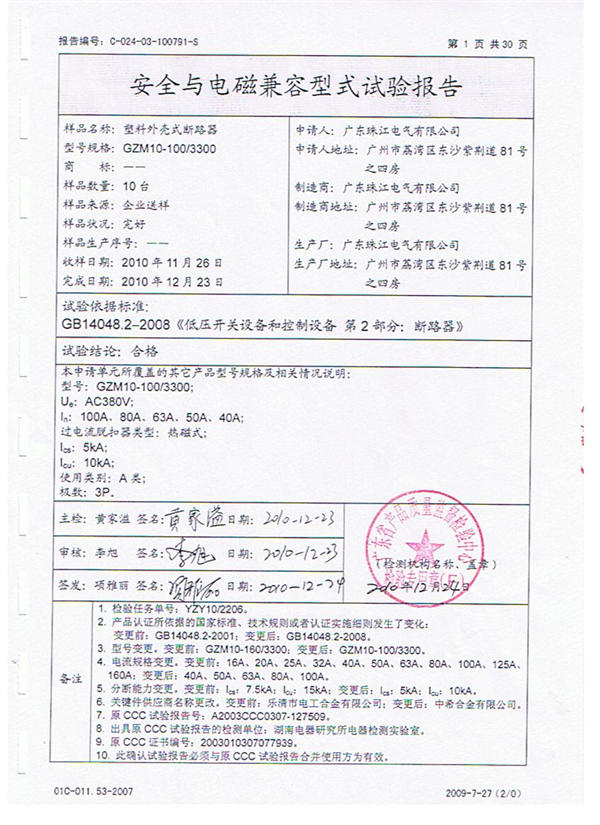 报告编号：C-024-03-100791-S
第 1 页 共30 页
安全与电磁兼容型式试验报告
样品名称：塑料外壳式断路器
型号规格：GZM10-100/3300
商 标：——
样品数量：10 台
样品来源：企业送样
样品状况：完好
样品生产序号：——
收样日期：2010 年 11 月 26 日
完成日期：2010 年 12 月 23 日
申请人：广东珠江电气有限公司
申请人地址：广州市荔湾区东沙紫荆道 81 号
之四房
制造商：广东珠江电气有限公司
制造商地址：广州市荔湾区东沙紫荆道 81 号
之四房
生产厂：广东珠江电气有限公司
生产厂地址：广州市荔湾区东沙紫荆道 81 号
之四房
试验依据标准：
GB14048.2–2008《低压开关设备和控制设备 第 2 部分：断路器》
试验结论：合格
本申请单元所覆盖的其它产品型号规格及相关情况说明：
型号：GZM10-100/3300；
Ue：AC380V；
In：100A、80A、63A、50A、40A；
过电流脱扣器类型：热磁式；
Ics：5kA；
Icu：10kA；
使用类别：A 类；
极数：3P。
主检：黄家溢 签名：黄家溢 日期：2010-12-23
审核：李旭 签名：李旭 日期：2010-12-23
签发：项雅丽 签名：项雅丽 日期：2010-12-24
广东省产品质量监督检验中心
（检测机构名称、盖章）
检验专用章
2010 年 12 月 24 日
备注
1. 检验任务单号：YZY10/2206。
2. 产品认证所依据的国家标准、技术规则或者认证实施细则发生了变化：
变更前：GB14048.2-2001；变更后：GB14048.2-2008。
3. 型号变更。变更前：GZM10-160/3300；变更后：GZM10-100/3300。
4. 电流规格变更。变更前：16A、20A、25A、32A、40A、50A、63A、80A、100A、125A、
160A；变更后：40A、50A、63A、80A、100A。
5. 分断能力变更。变更前：Ics：7.5kA；Icu：15kA；变更后：Ics：5kA；Icu：10kA。
6. 关键件供应商名称更改。变更前：乐清市电工合金有限公司；变更后：中希合金有限公司。
7. 原 CCC 试验报告号：A2003CCC0307-127509。
8. 出具原 CCC 试验报告的检测单位：湖南电器研究所电器检测实验室。
9. 原 CCC 证书编号：2003010307077939。
10. 此确认试验报告必须与原 CCC 试验报告合并使用方为有效。
01C-011.53-2007
2009-7-27（2/0）